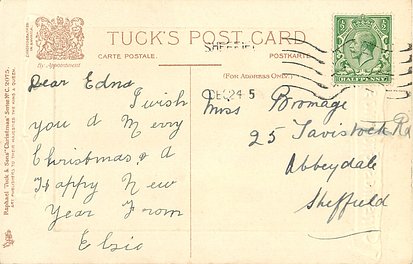 TUCK'S POST CARD
CARTE POSTALE.
POSTKARTE.
By Appointment
(FOR ADDRESS ONLY.)
SHEFFIEL
DEC 24 5
HALFPENNY
Dear Edna
I wish
you a Merry
Christmas & a
Happy New
Year From
Elsie
Miss Bromage
25 Tavistock Rd
Abbeydale
Sheffield
Raphael Tuck & Sons "Christmas" Series No C. 2075.